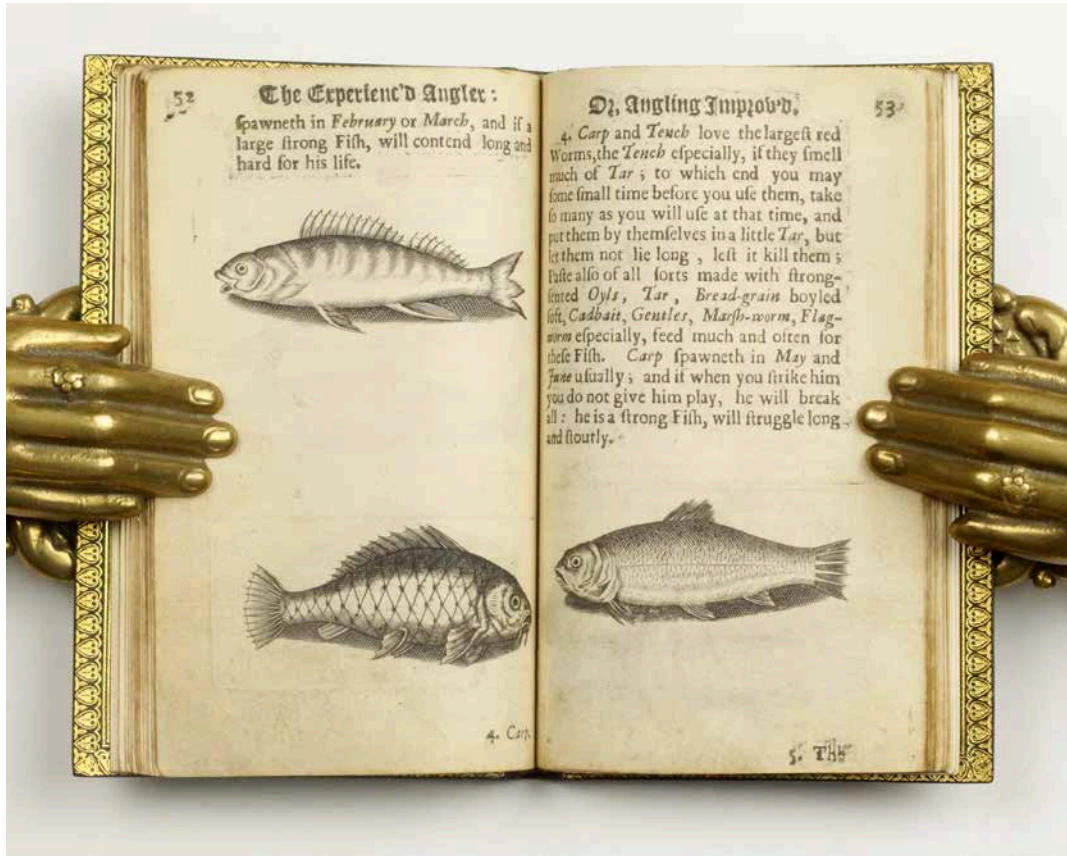 52
The Experienc'd Angler:
ſpawneth in February or March, and if a
large ſtrong Fiſh, will contend long and
hard for his life.
4. Carp
Or, Angling Improv'd.
53
4. Carp and Tench love the largeſt red
Worms, the Tench eſpecially, if they ſmell
much of Tar; to which end you may
ſome ſmall time before you uſe them, take
ſo many as you will uſe at that time, and
put them by themſelves in a little Tar, but
let them not lie long, leſt it kill them;
Paſte alſo of all ſorts made with ſtrong-
ſented Oyls, Tar, Bread-grain boyled
ſoft, Cadbait, Gentles, Marſh-worm, Flag-
worm eſpecially, feed much and often for
theſe Fiſh. Carp ſpawneth in May and
June uſually; and if when you ſtrike him
you do not give him play, he will break
all: he is a ſtrong Fiſh, will ſtruggle long
and ſtoutly.
5. The